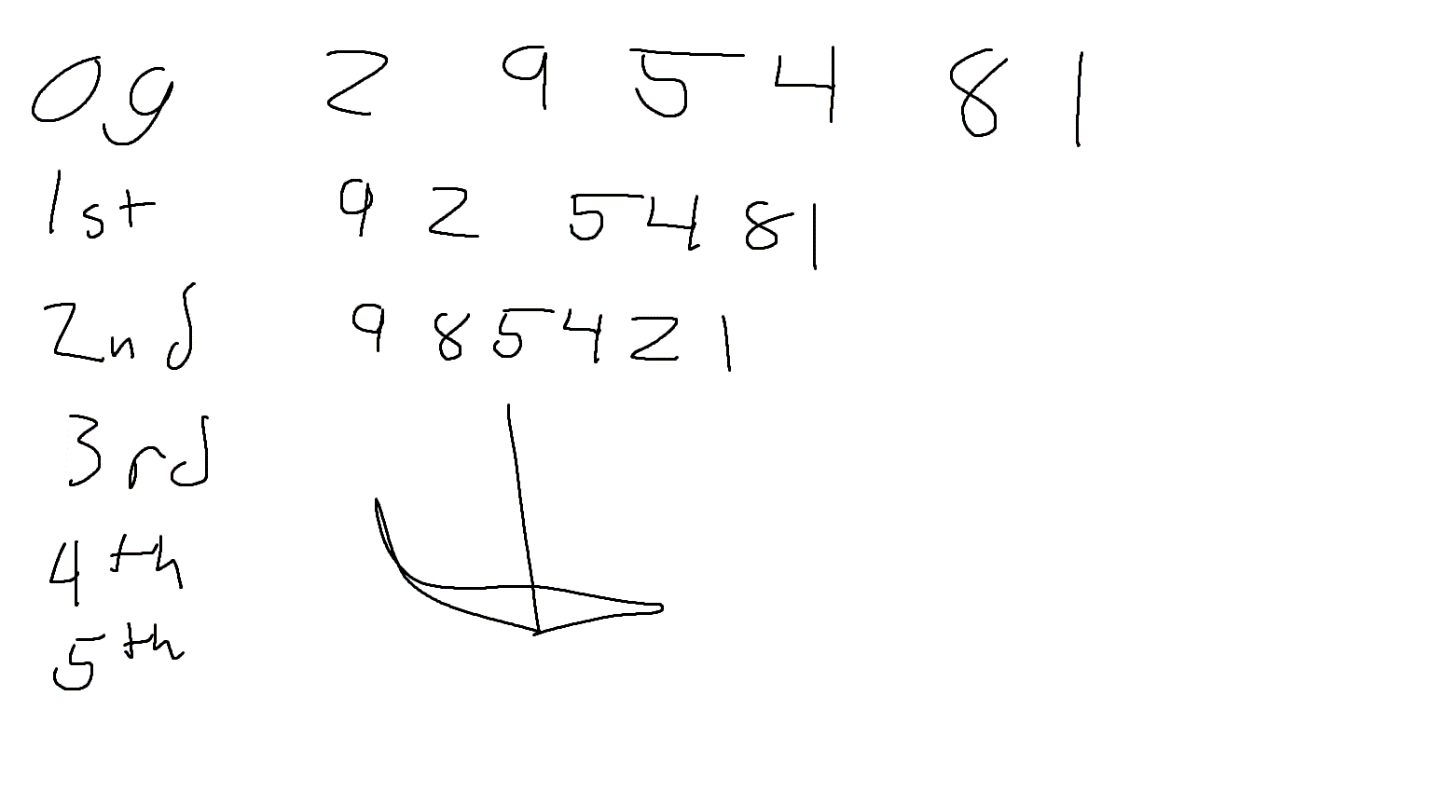 og 2 9 5 4 8 1
1st 9 2 5 4 8 1
2nd 9 8 5 4 2 1
3rd
4th
5th